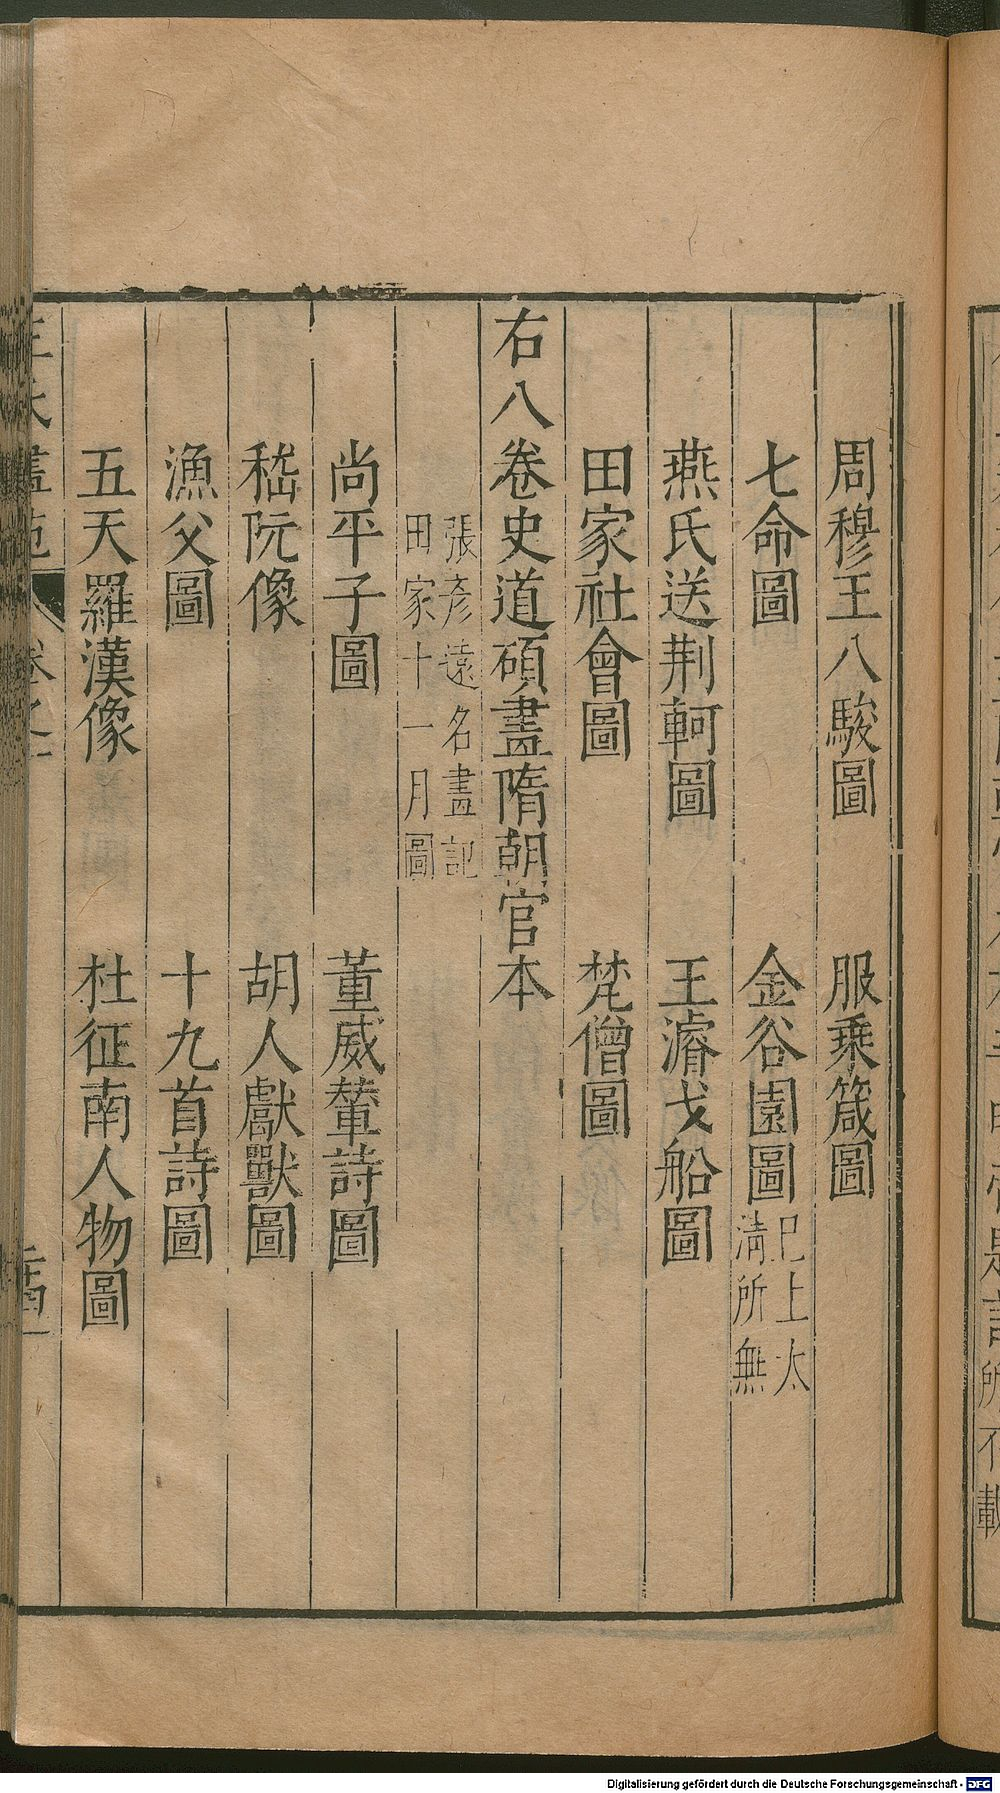 周穆王八駿圖　服乗箴圖
七命圖　金谷園圖巳上太清所無
燕氏送荆軻圖　王濬戈船圖
田家社會圖　梵僧圖
右八卷史道碩畫隋朝官本
張彦遠名畫記
田家十一月圖
尚平子圖　董威輦詩圖
嵇阮像　胡人獻獸圖
漁父圖　十九首詩圖
五天羅漢像　杜征南人物圖
Digitalisierung gefördert durch die Deutsche Forschungsgemeinschaft - DFG